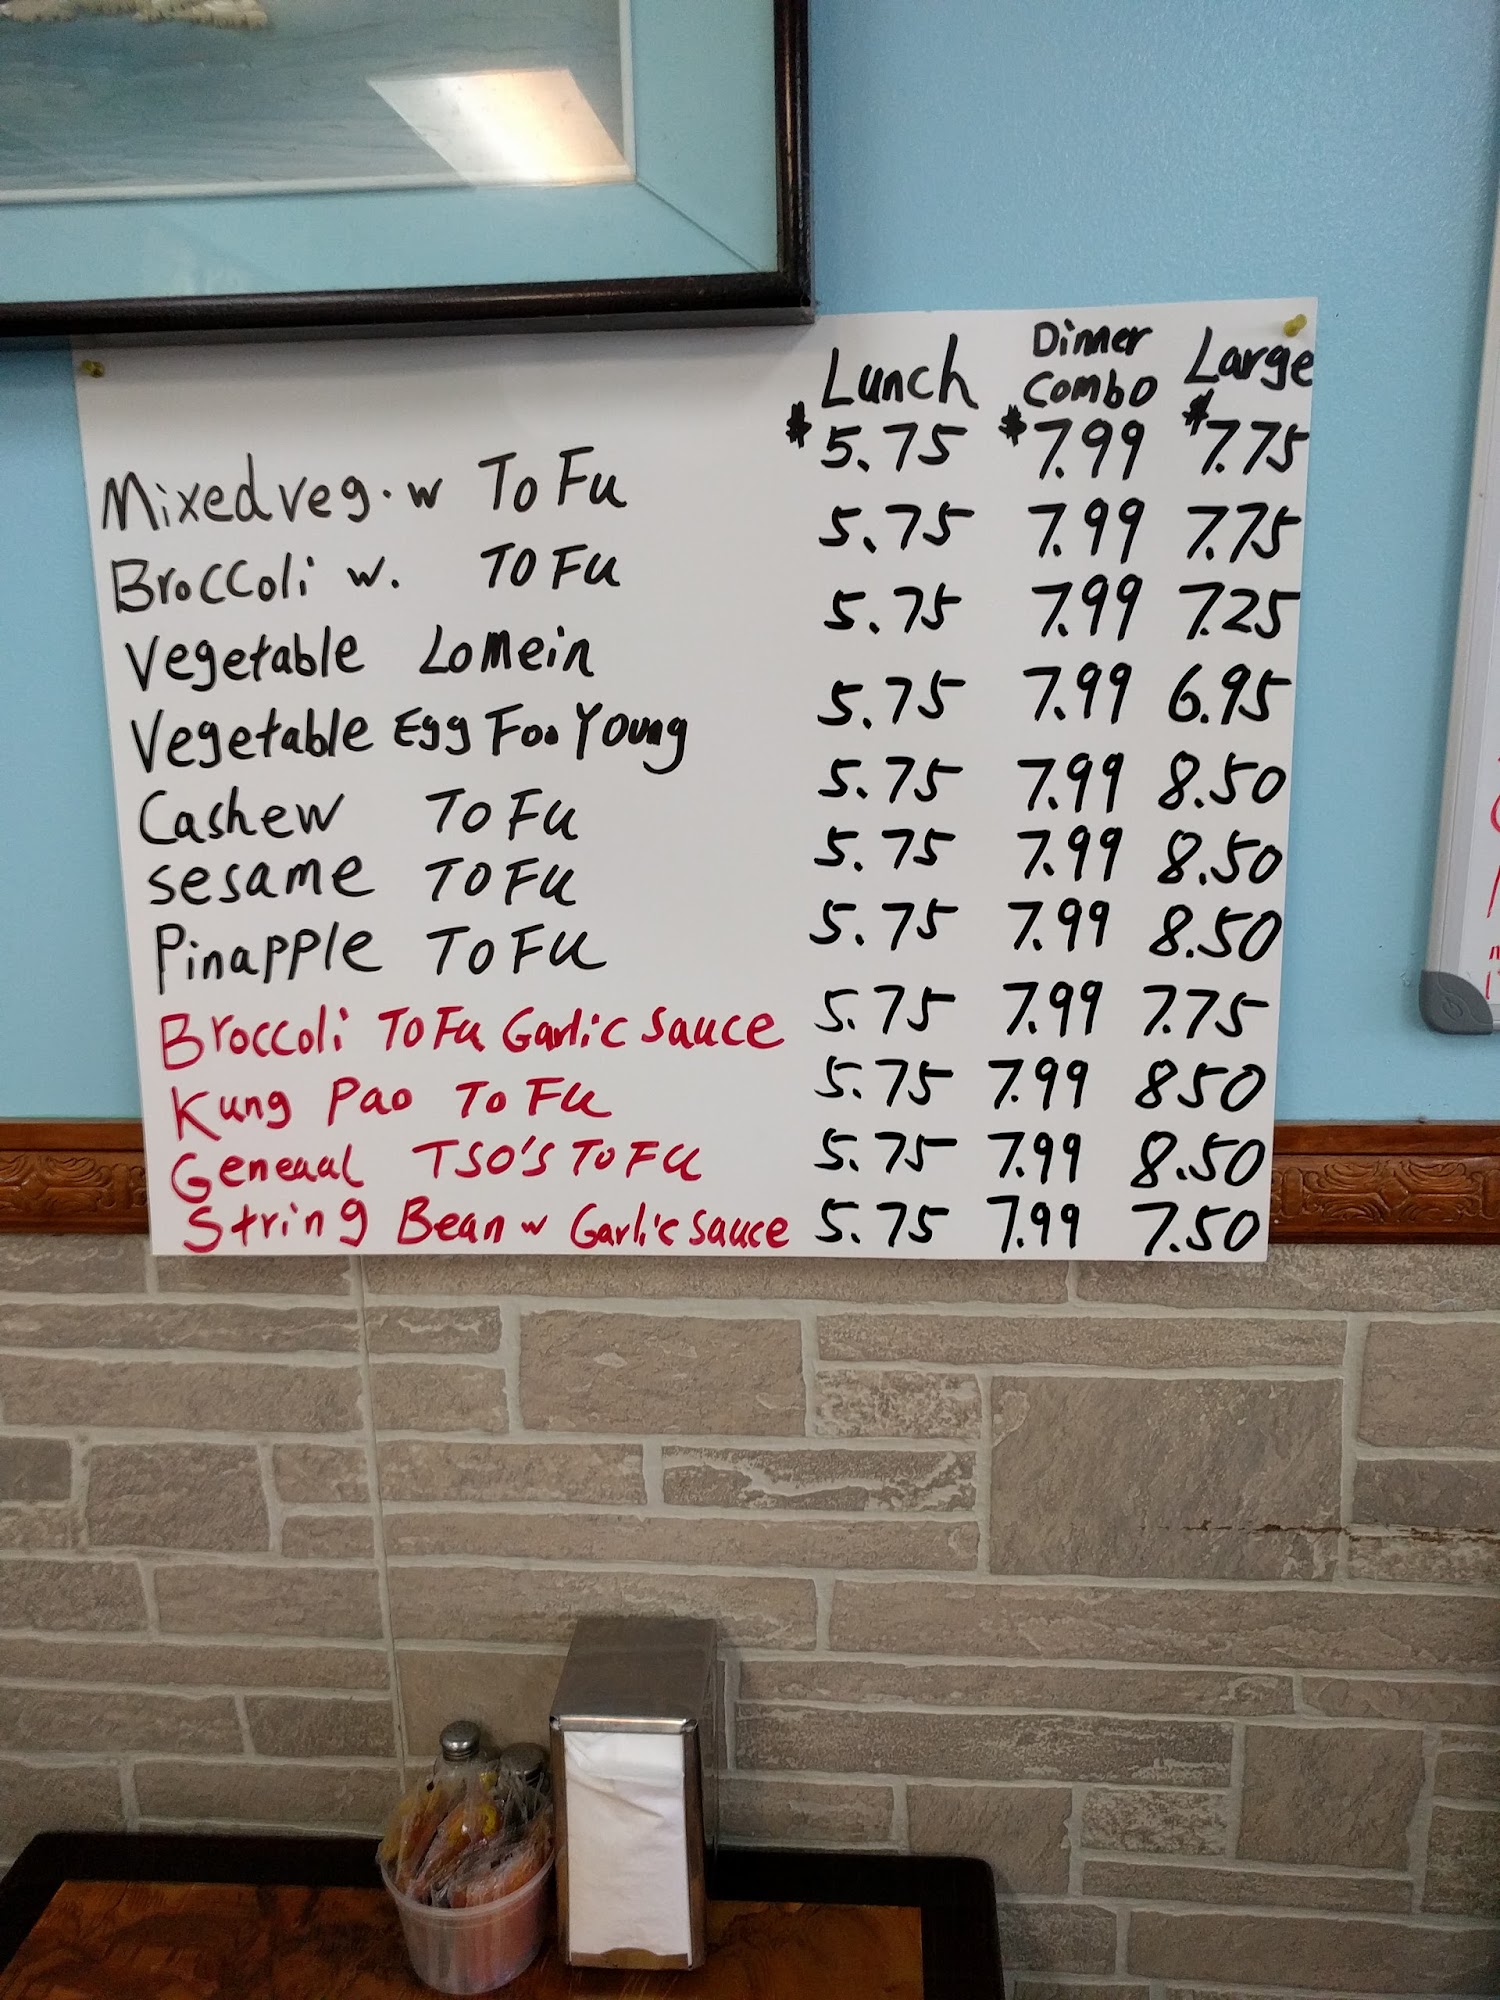 Lunch Dinner Combo Large
Mixed veg. w ToFu $5.75 $7.99 $7.75
Broccoli w. TOFu 5.75 7.99 7.75
Vegetable Lomein 5.75 7.99 7.25
Vegetable Egg Foo Young 5.75 7.99 6.95
Cashew ToFu 5.75 7.99 8.50
sesame TOFu 5.75 7.99 8.50
Pinapple ToFu 5.75 7.99 8.50
Broccoli ToFu Garlic sauce 5.75 7.99 7.75
Kung Pao ToFu 5.75 7.99 850
Geneaal TSO'S ToFu 5.75 7.99 8.50
String Bean w Garlic sauce 5.75 7.99 7.50